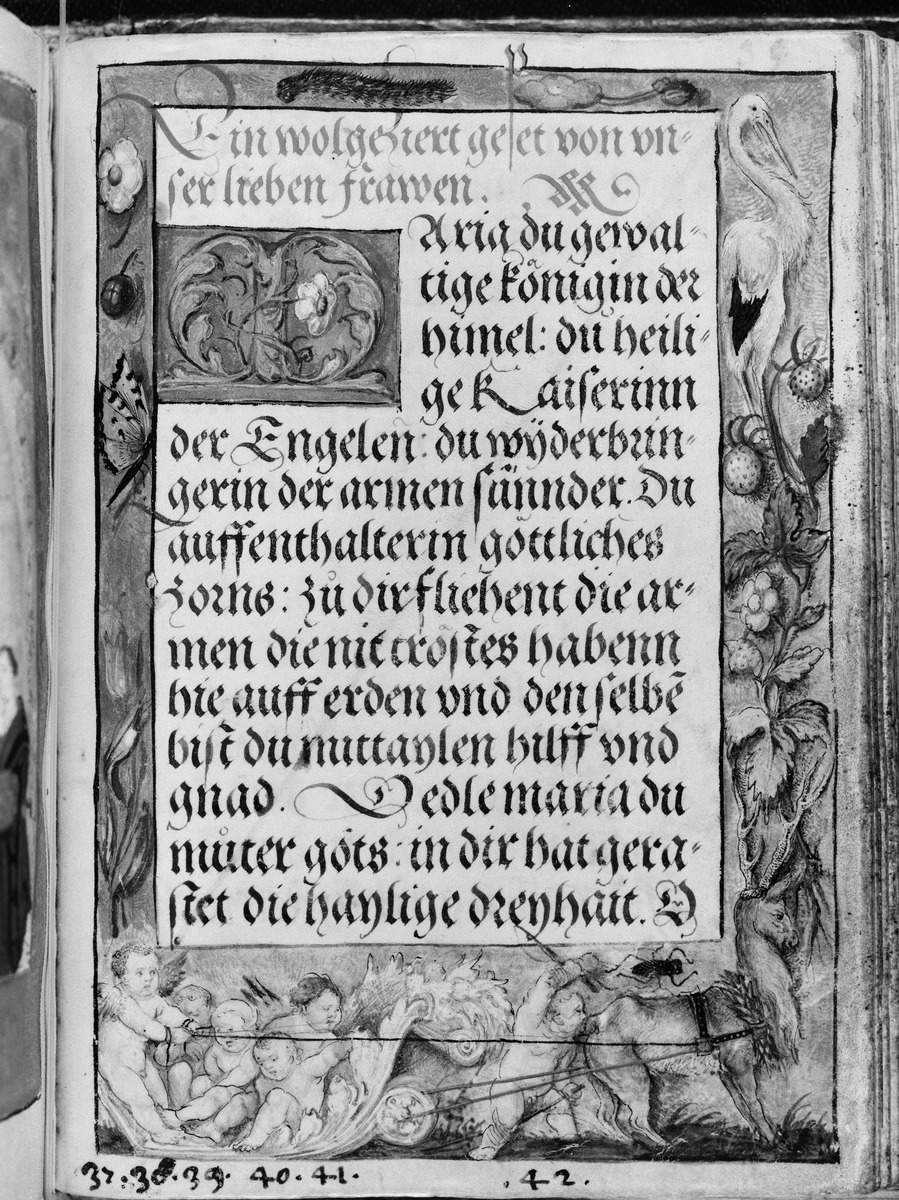 Ein wolgeziert gebet von vn-
ser lieben frawen.
Aria du gewal-
tige kőnigin der
himel: du heili-
ge Kaiserinn
der Engelen: du wÿderbrin-
gerin der armen sünnder. Du
auffenthalterin göttliches
Zorns: zů dir fliehent die ar-
men die nit trőstes habenn
hie auff erden vnd den selbē
bist du mittaylen hilff vnd
gnad. O edle maria du
můter gots: in dir hat gera-
stet die haylige dreyhait. O
37. 38. 39. 40. 41. .42.